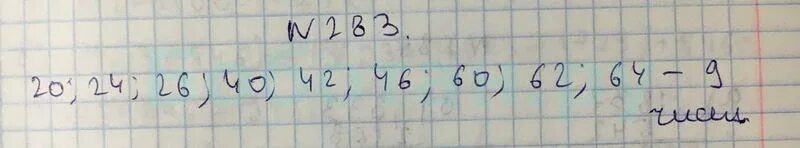 N283.
20; 24; 26; 40; 42; 46; 60; 62; 64 - 9
чисел